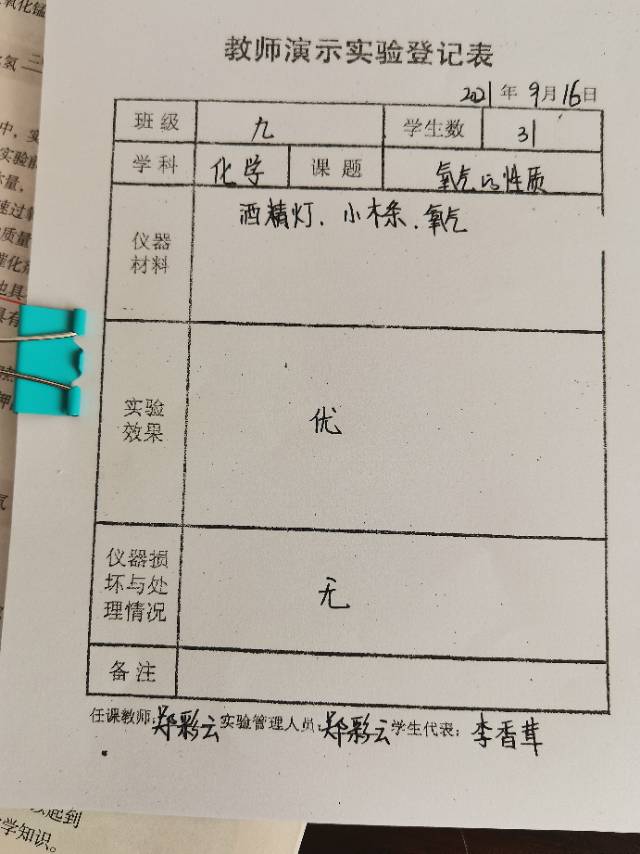 教师演示实验登记表
2021年9月16日
班级 九 学生数 31
学科 化学 课题 氧气的性质
仪器材料 酒精灯、小木条、氧气
实验效果 优
仪器损坏与处理情况 无
备注
任课教师:郑彩云 实验管理人员:郑彩云 学生代表:李香茸
以起到
学知识。